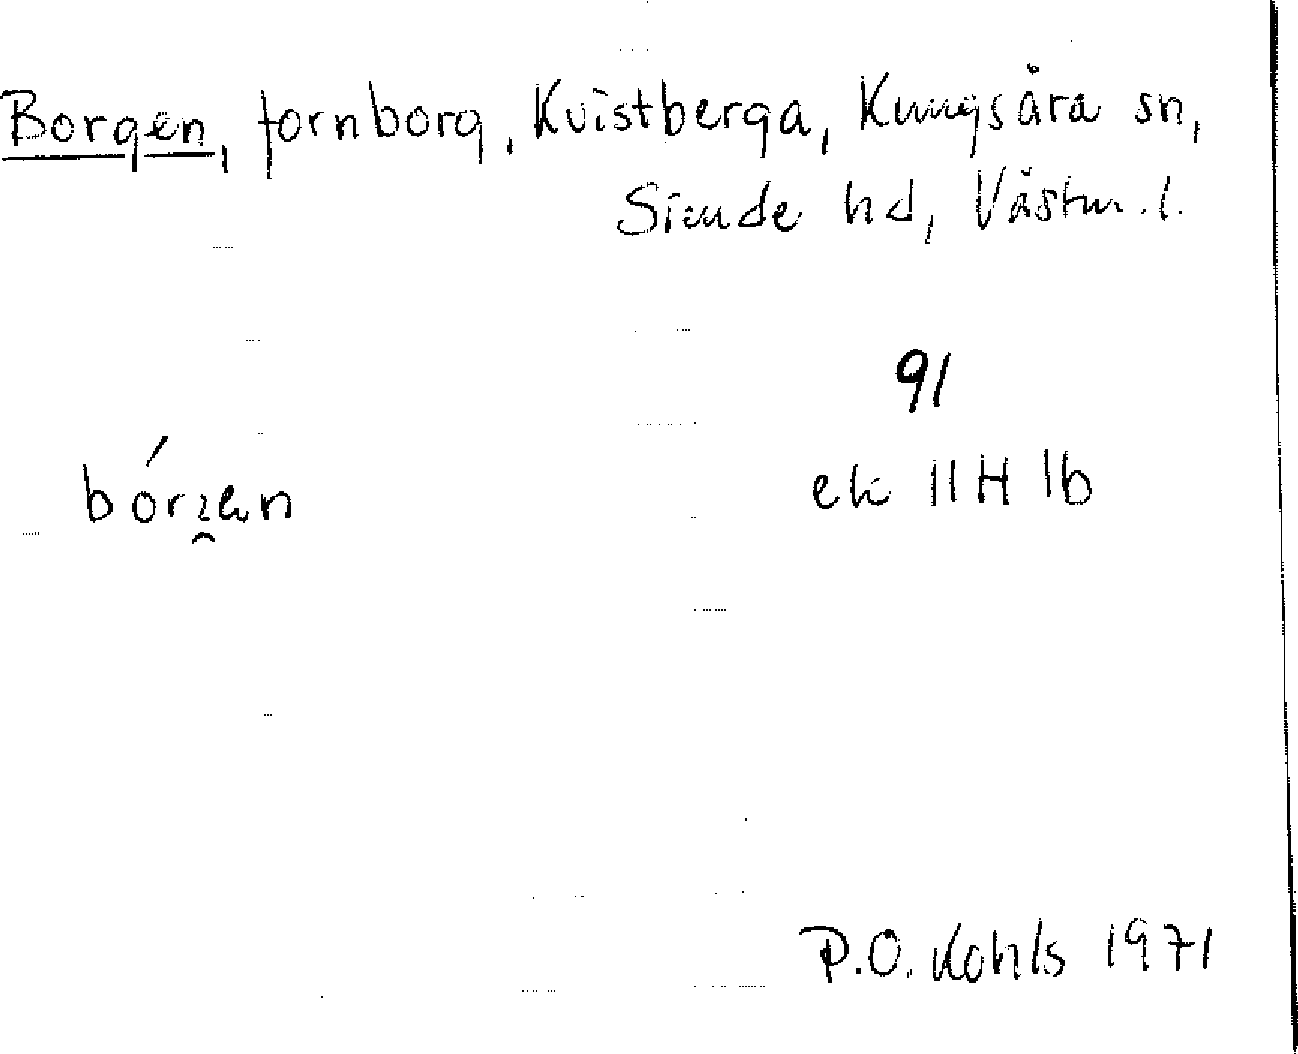 Borgen, fornborg, Kvistberga, Kungsåra sn,
Siende hd, Västm.l.
91
ek 11H 1b
P.O. Kohls 1971